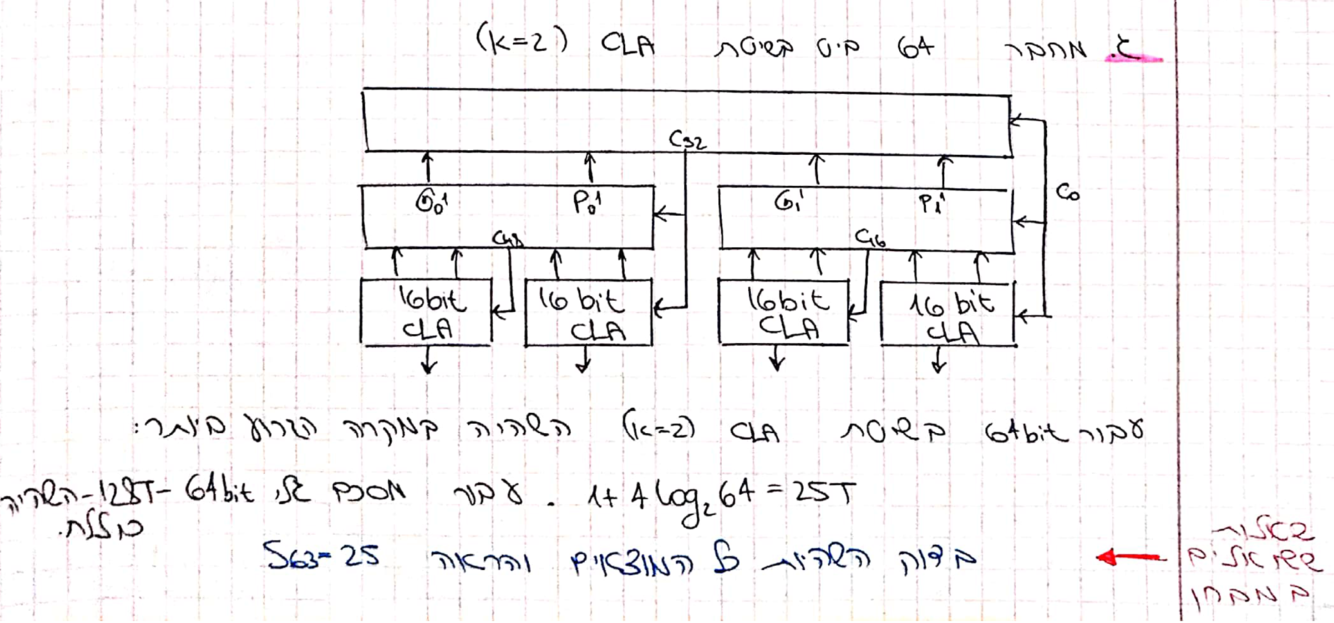 ג. מחבר 64 ביט בשיטת CLA (k=2)
C32
C0
G0¹ P0¹ G1¹ P1¹
C48 C16
16bit CLA 16 bit CLA 16bit CLA 16 bit CLA
עבור 64bit בשיטת CLA (k=2) השהיה במקרה הגרוע ביותר:
1+4log₂64=25T . עבור מסכם של 64bit -128T-השהיה
כוללת.
בדוק השהיות כל המוצאים והראה S63=25
באלות
ששואלים
במבחן